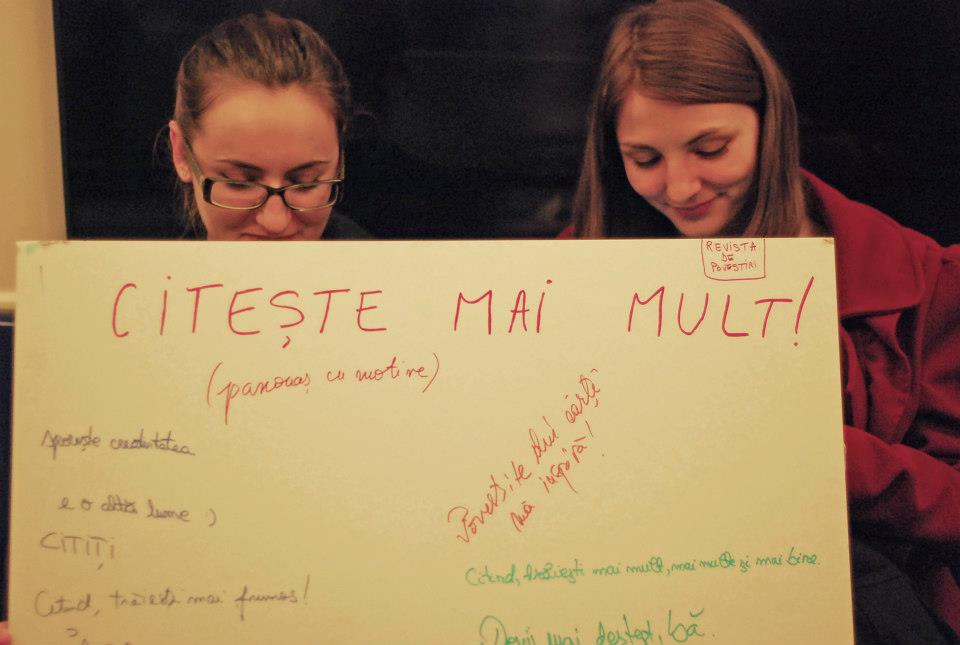 REVISTA
DE
POVESTIRI
CITEȘTE MAI MULT!
(panouaș cu motive)
sporește creativitatea
e o altă lume :)
CITIȚI
Citind, trăiești mai frumos!
Poveștile din cărți
mă inspiră!
Citind, trăiești mai mult, mai multe și mai bine.
Devii mai deștept, bă.